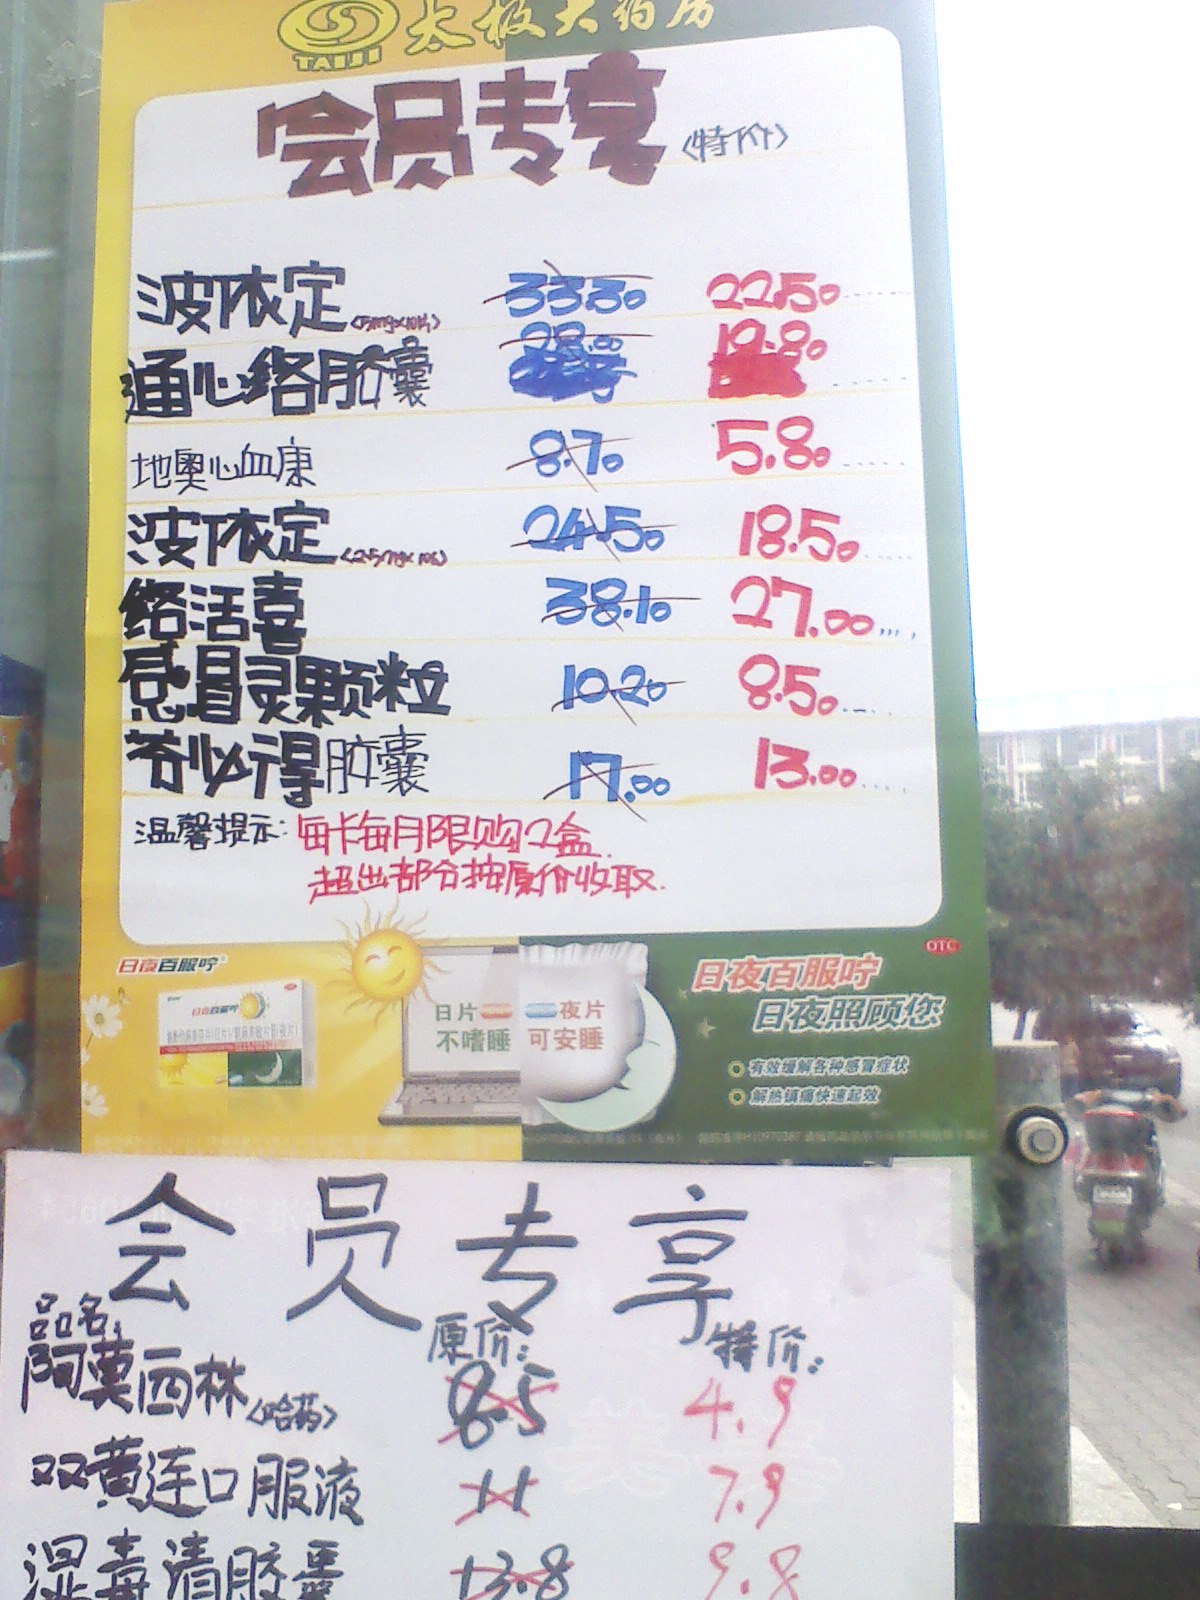 TAIJI 太极大药房
会员专享 <特价>
波依定 <5mg×10片> 33.30 22.50
28.00 19.80
通心络胶囊
地奥心血康 8.70 5.80
波依定 24.50 18.50
络活喜 38.10 27.00
感冒灵颗粒 10.20 8.50
芬必得胶囊 17.00 13.00
温馨提示: 每卡每月限购2盒
超出部分按原价收取.
OTC
日夜百服咛
日夜百服咛
日夜照顾您
日片 夜片
不嗜睡 可安睡
有效缓解各种感冒症状
解热镇痛快速起效
会员专享
品名: 原价: 特价:
阿莫西林 <哈药> 8.5 4.9
双黄连口服液 11 7.9
湿毒清胶囊 13.8 9.8